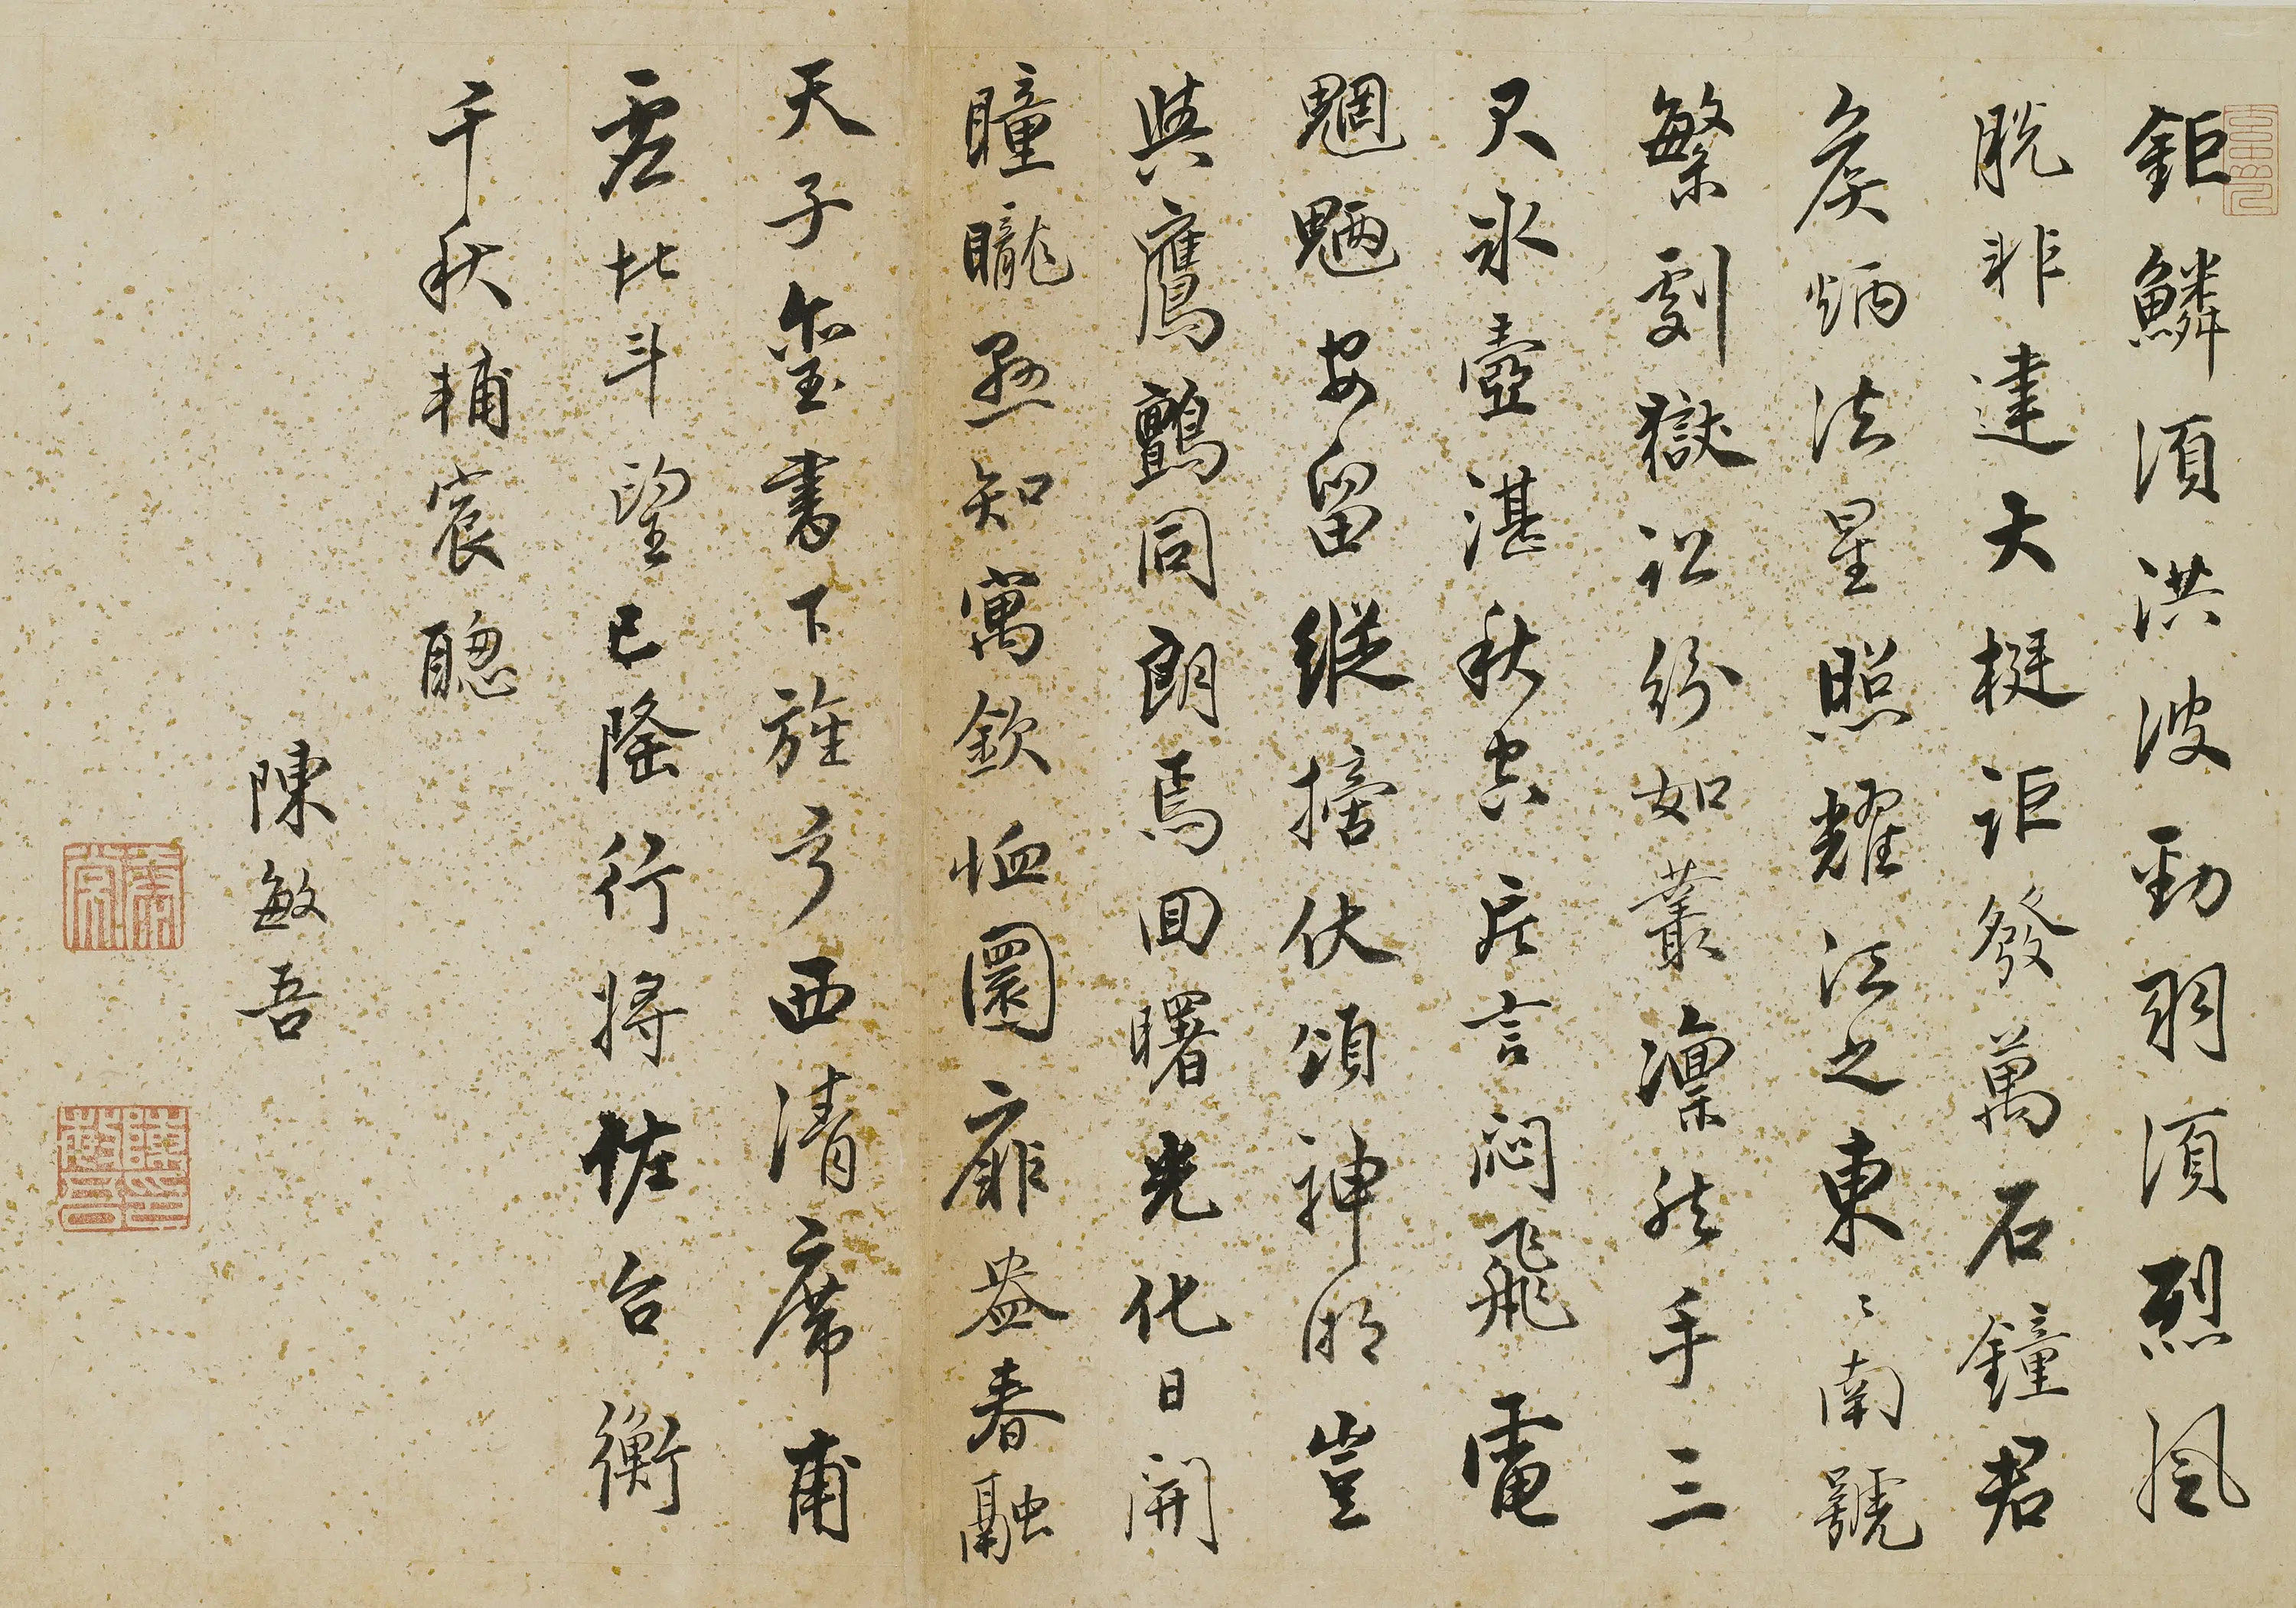 鉅鱗須洪波勁羽須烈風
脫非建大梃詎發萬石鐘君
矦炳法星照耀江之東〻南號
繁劇獄訟紛如叢凜然手三
尺冰壺湛秋空片言闷飛電
魍魎安留縱搒伏頌神明豈
與鷹鸇同朗焉回曙光化日開
瞳曨恐知寓欽恤圜扉盎春融
天子璽書下旌亏西清席甫
虛北斗望已隆行將佐台衡
千秋輔宸聰
陳敏吾